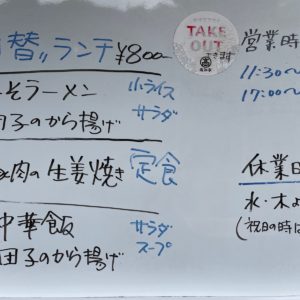 替〃ランチ ¥800
そラーメン 小ライス
団子のから揚げ サラダ
肉の生姜焼き 定食
中華飯 サラダ
団子のから揚げ スープ
TAKE
OUT
できます
営業時
11:30〜
17:00〜
休業日
水・木
(祝日の時は